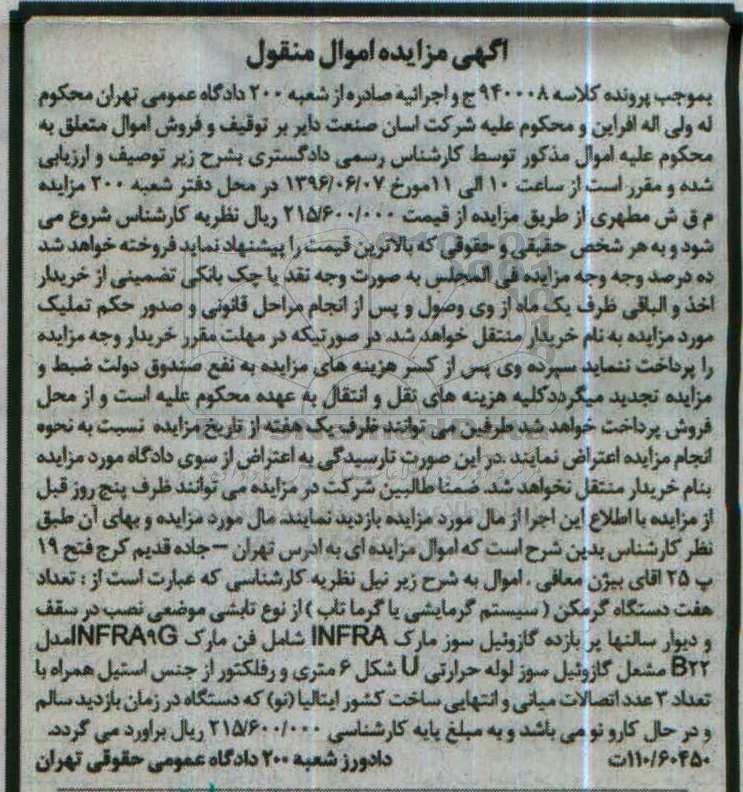 آگهی مزایده اموال منقول
بموجب پرونده کلاسه ۹۴۰۰۰۸ ج و اجرائیه صادره از شعبه ۲۰۰ دادگاه عمومی تهران محکوم
له ولی اله افراین و محکوم علیه شرکت اسان صنعت دایر بر توقیف و فروش اموال متعلق به
محکوم علیه اموال مذکور توسط کارشناس رسمی دادگستری بشرح زیر توصیف و ارزیابی
شده و مقرر است از ساعت ۱۰ الی ۱۱مورخ ۱۳۹۶/۰۶/۰۷ در محل دفتر شعبه ۲۰۰ مزایده
م ق ش مطهری از طریق مزایده از قیمت ۲۱۵/۶۰۰/۰۰۰ ریال نظریه کارشناس شروع می
شود و به هر شخص حقیقی و حقوقی که بالاترین قیمت را پیشنهاد نماید فروخته خواهد شد
ده درصد وجه وجه مزایده فی المجلس به صورت وجه نقد یا چک بانکی تضمینی از خریدار
اخذ و الباقی ظرف یک ماه از وی وصول و پس از انجام مراحل قانونی و صدور حکم تملیک
مورد مزایده به نام خریدار منتقل خواهد شد. در صورتیکه در مهلت مقرر خریدار وجه مزایده
را پرداخت ننماید سپرده وی پس از کسر هزینه های مزایده به نفع صندوق دولت ضبط و
مزایده تجدید میگرددکلیه هزینه های نقل و انتقال به عهده محکوم علیه است و از محل
فروش پرداخت خواهد شد طرفین می توانند ظرف یک هفته از تاریخ مزایده نسبت به نحوه
انجام مزایده اعتراض نمایند .در این صورت تارسیدگی به اعتراض از سوی دادگاه مورد مزایده
بنام خریدار منتقل نخواهد شد. ضمنا طالبین شرکت در مزایده می توانند ظرف پنج روز قبل
از مزایده با اطلاع این اجرا از مال مورد مزایده بازدید نمایند. مال مورد مزایده و بهای آن طبق
نظر کارشناس بدین شرح است که اموال مزایده ای به ادرس تهران – جاده قدیم کرج فتح ۱۹
پ ۲۵ اقای بیژن معافی . اموال به شرح زیر نیل نظریه کارشناسی که عبارت است از : تعداد
هفت دستگاه گرمکن ( سیستم گرمایشی یا گرما تاب ) از نوع تابشی موضعی نصب در سقف
و دیوار سالنها پر بازده گازوئیل سوز مارک INFRA شامل فن مارک INFRA۹Gمدل
B۲۲ مشعل گازوئیل سوز لوله حرارتی U شکل ۶ متری و رفلکتور از جنس استیل همراه با
تعداد ۳ عدد اتصالات میانی و انتهایی ساخت کشور ایتالیا (نو) که دستگاه در زمان بازدید سالم
و در حال کارو نو می باشد و به مبلغ پایه کارشناسی ۲۱۵/۶۰۰/۰۰۰ ریال براورد می گردد.
۱۱۰/۶۰۴۵۰ت دادورز شعبه ۲۰۰ دادگاه عمومی حقوقی تهران